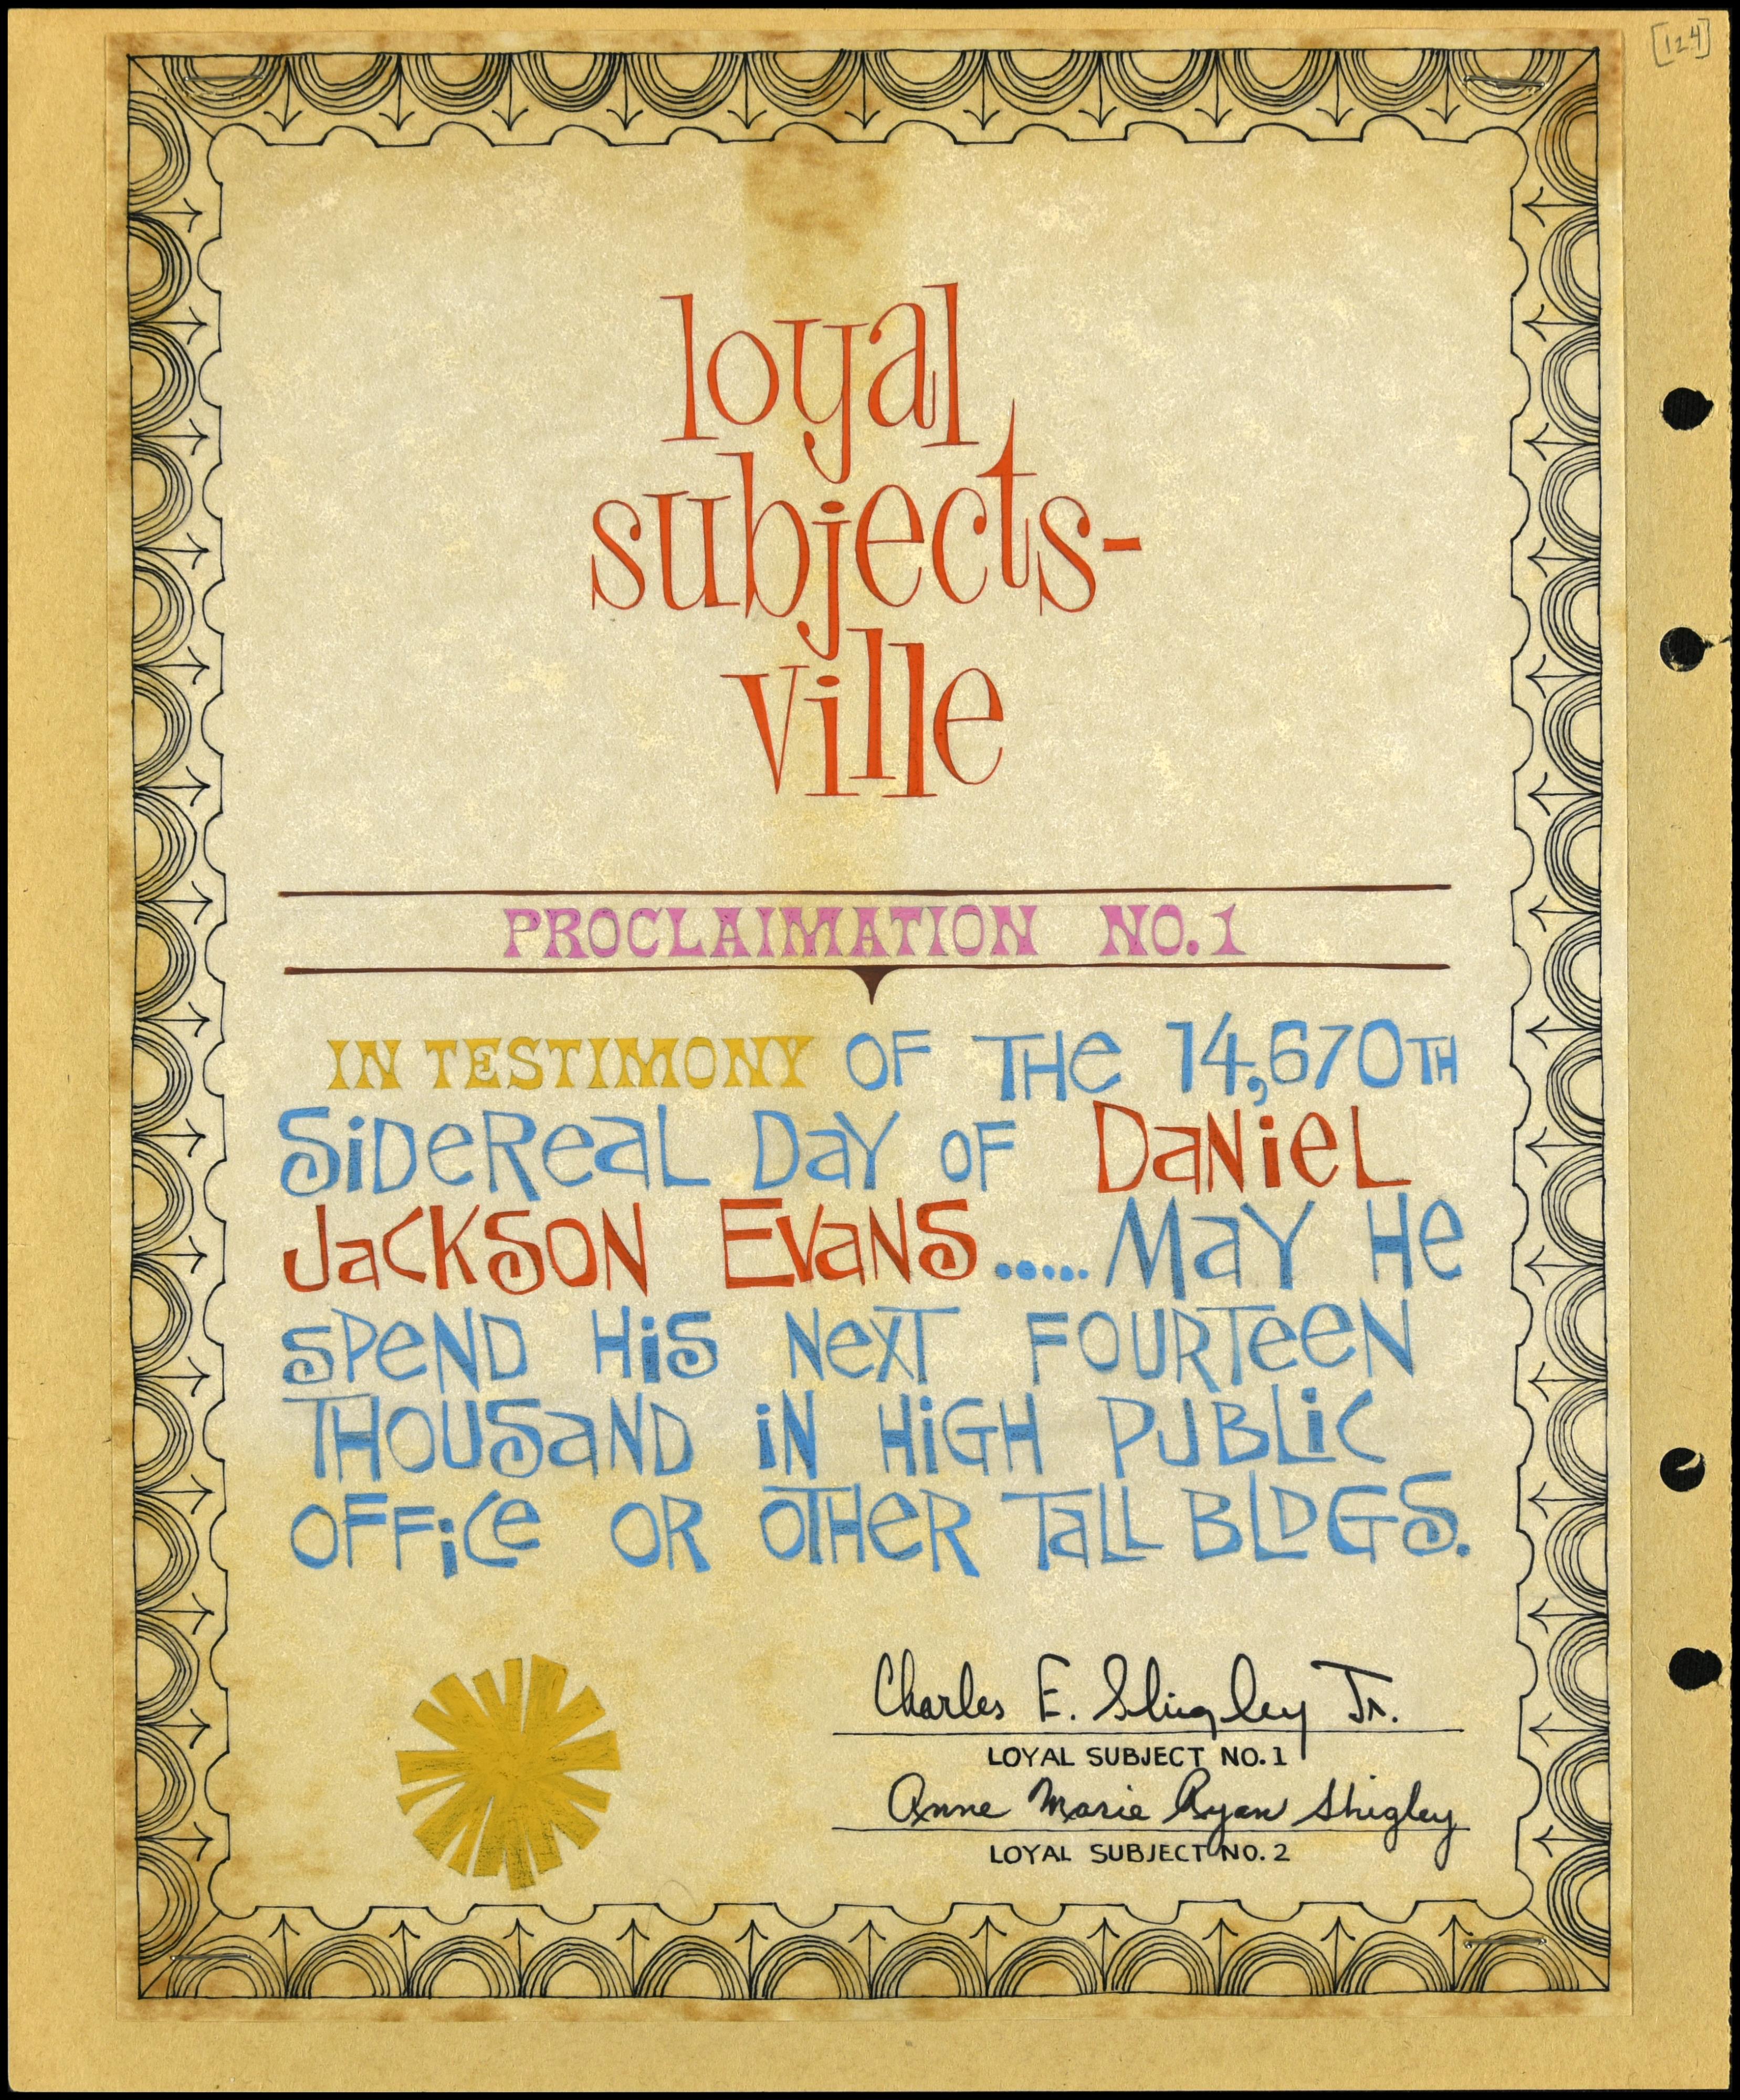 [124]
loyal
subjects-
ville
PROCLAIMATION NO. 1
IN TESTIMONY OF THe 14,670TH
SiDeReaL DaY OF DaNieL
JaCKSON EVaNS.....MaY He
SPeND HiS NeXT FOURTeeN
THOUSaND iN HiGH PUBLiC
OFFiCe OR OTHeR TaLL BLDGS.
Charles E. Shigley Jr.
LOYAL SUBJECT NO. 1
Anne Marie Ryan Shigley
LOYAL SUBJECT NO. 2